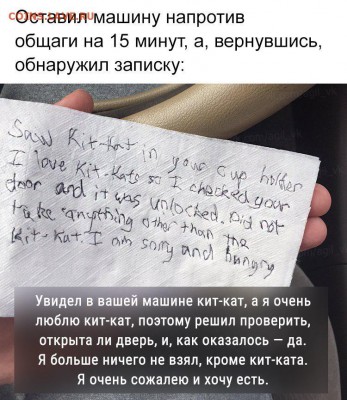 Оставил машину напротив
общаги на 15 минут, а, вернувшись,
обнаружил записку:
Saw Kit-Kat in your cup holder
I love Kit-Kats so I checked your
door and it was unlocked. Did not
take anything other than the
Kit-Kat. I am sorry and hungry
Увидел в вашей машине кит-кат, а я очень
люблю кит-кат, поэтому решил проверить,
открыта ли дверь, и, как оказалось — да.
Я больше ничего не взял, кроме кит-ката.
Я очень сожалею и хочу есть.